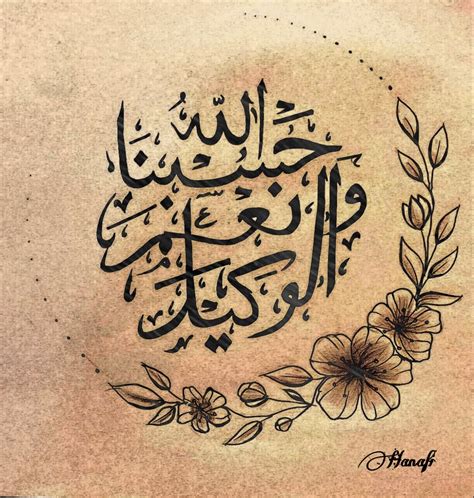 حسبنا الله
ونعم
الوكيل
Hanafi